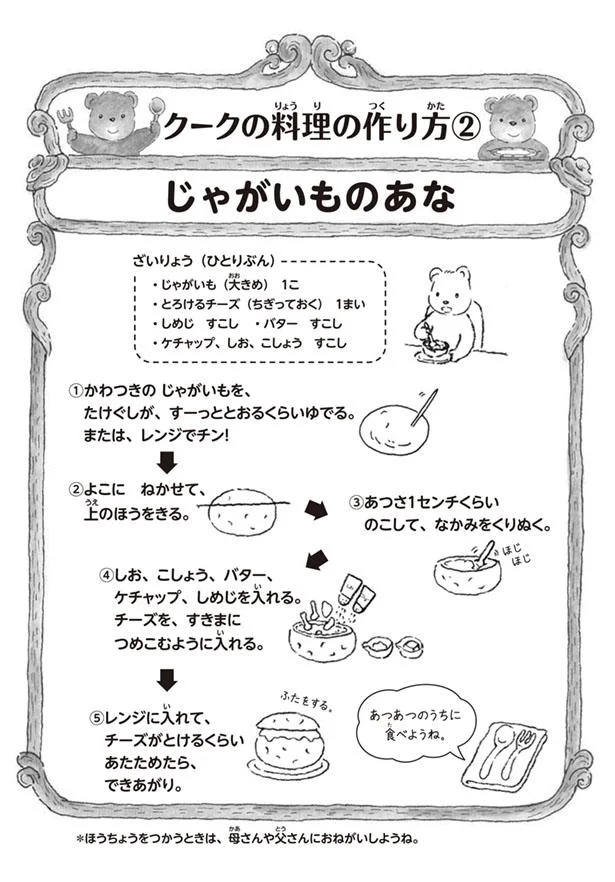 クークの料理の作り方②
じゃがいものあな
ざいりょう（ひとりぶん）
・じゃがいも（大きめ） 1こ
・とろけるチーズ（ちぎっておく） 1まい
・しめじ すこし ・バター すこし
・ケチャップ、しお、こしょう すこし
①かわつきの じゃがいもを、
たけぐしが、すーっととおるくらいゆでる。
または、レンジでチン!
②よこに ねかせて、
上のほうをきる。
③あつさ1センチくらい
のこして、なかみをくりぬく。
ほじ
ほじ
④しお、こしょう、バター、
ケチャップ、しめじを入れる。
チーズを、すきまに
つめこむように入れる。
⑤レンジに入れて、
チーズがとけるくらい
あたためたら、
できあがり。
ふたをする。
あつあつのうちに
食べようね。
＊ほうちょうをつかうときは、母さんや父さんにおねがいしようね。